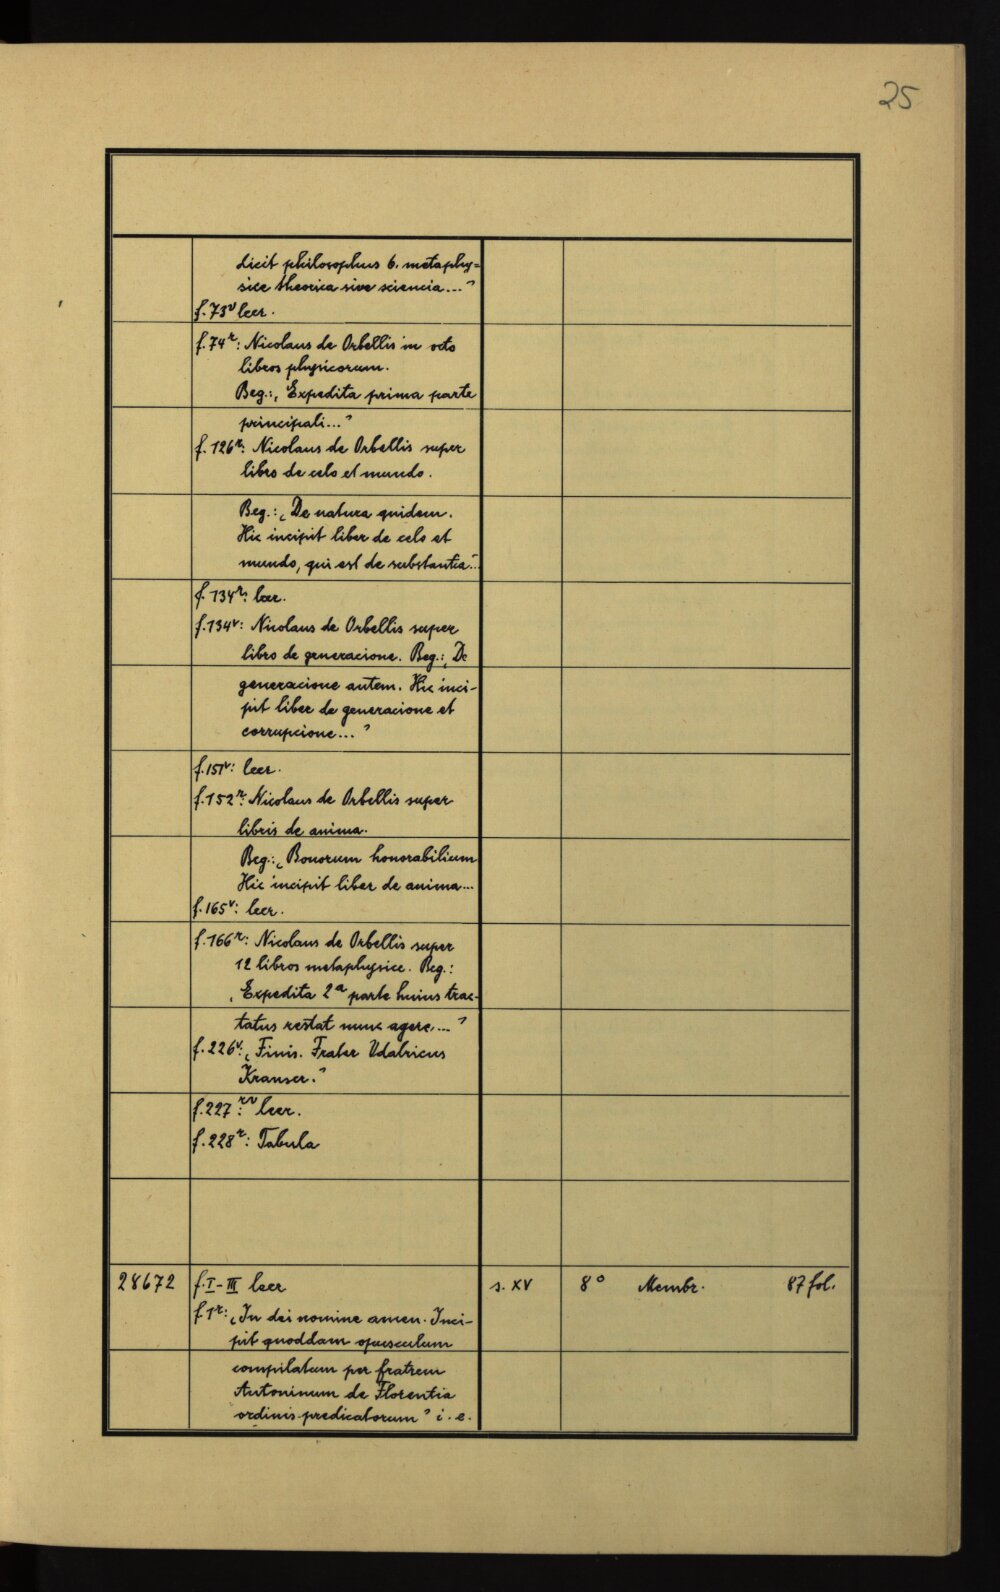 25
dicit philosophus 6. metaphy=
sice theorica sive sciencia..."
f. 73v leer.
f. 74r: Nicolaus de Orbellis in octo
libros physicorum.
Beg.: „Expedita prima parte
principali..."
f. 126r: Nicolaus de Orbellis super
libro de celo et mundo.
Beg.: „De natura quidem.
Hic incipit liber de celo et
mundo, qui est de substantia..."
f. 134r: leer.
f. 134v: Nicolaus de Orbellis super
libro de generacione. Beg.: „De
generacione autem. Hic inci-
pit liber de generacione et
corrupcione..."
f. 151v: leer.
f. 152r: Nicolaus de Orbellis super
libris de anima.
Beg.: „Bonorum honorabilium
Hic incipit liber de anima...
f. 165v: leer.
f. 166r: Nicolaus de Orbellis super
12 libros metaphysice. Beg.:
„Expedita 2a parte huius trac-
tatus restat nunc agere..."
f. 226v: „Finis. Frater Udalricus
Kranser."
f. 227rv: leer.
f. 228r: Tabula
28672 f. I-III leer s. XV 8° Membr. 87 fol.
f. 1r: „In dei nomine amen. Inci-
pit quoddam opusculum
compilatum per fratrem
Antoninum de Florentia
ordinis predicatorum" i. e.